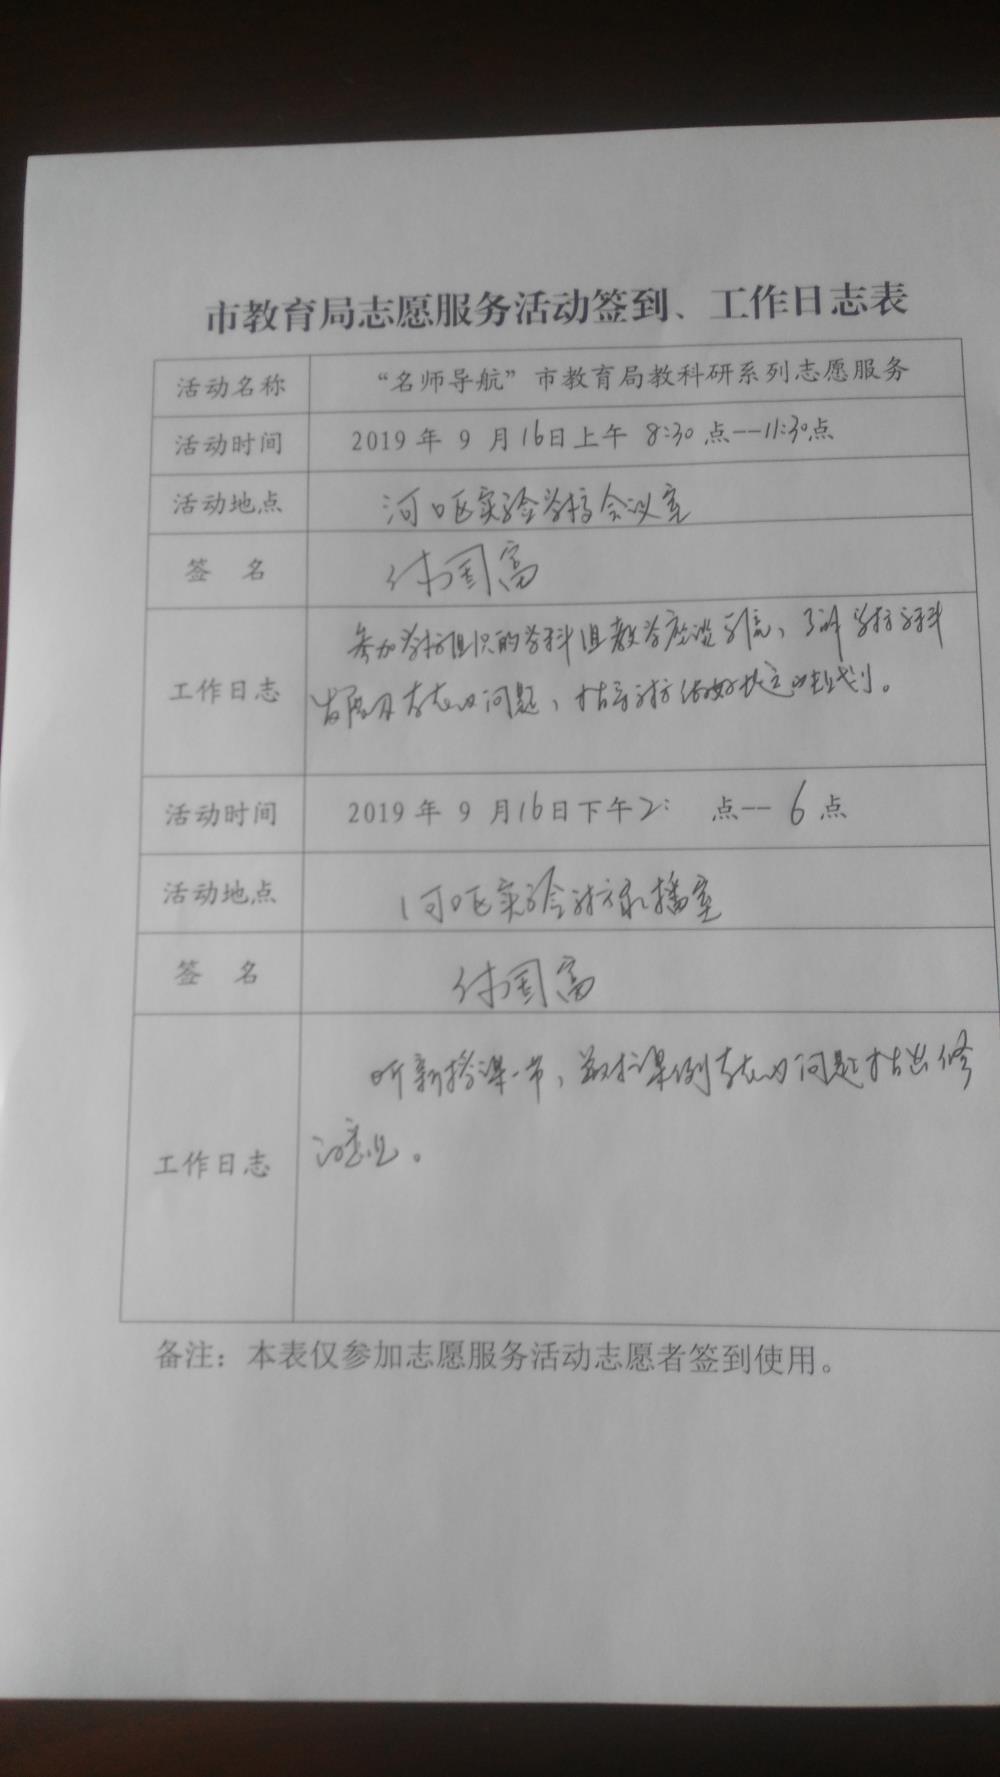 市教育局志愿服务活动签到、工作日志表
活动名称 “名师导航”市教育局教科研系列志愿服务
活动时间 2019 年 9 月16日上午 8:30 点--11:30点
活动地点 河口区实验学校会议室
签 名 付国富
工作日志 参加学校组织的学科组教学座谈, 了解学校学科
发展及存在的问题, 指导学校做好规划。
活动时间 2019 年 9 月16日下午2: 点-- 6 点
活动地点 河口区实验学校录播室
签 名 付国富
工作日志 听新授课一节, 课例存在的问题指出修
改意见。
备注：本表仅参加志愿服务活动志愿者签到使用。